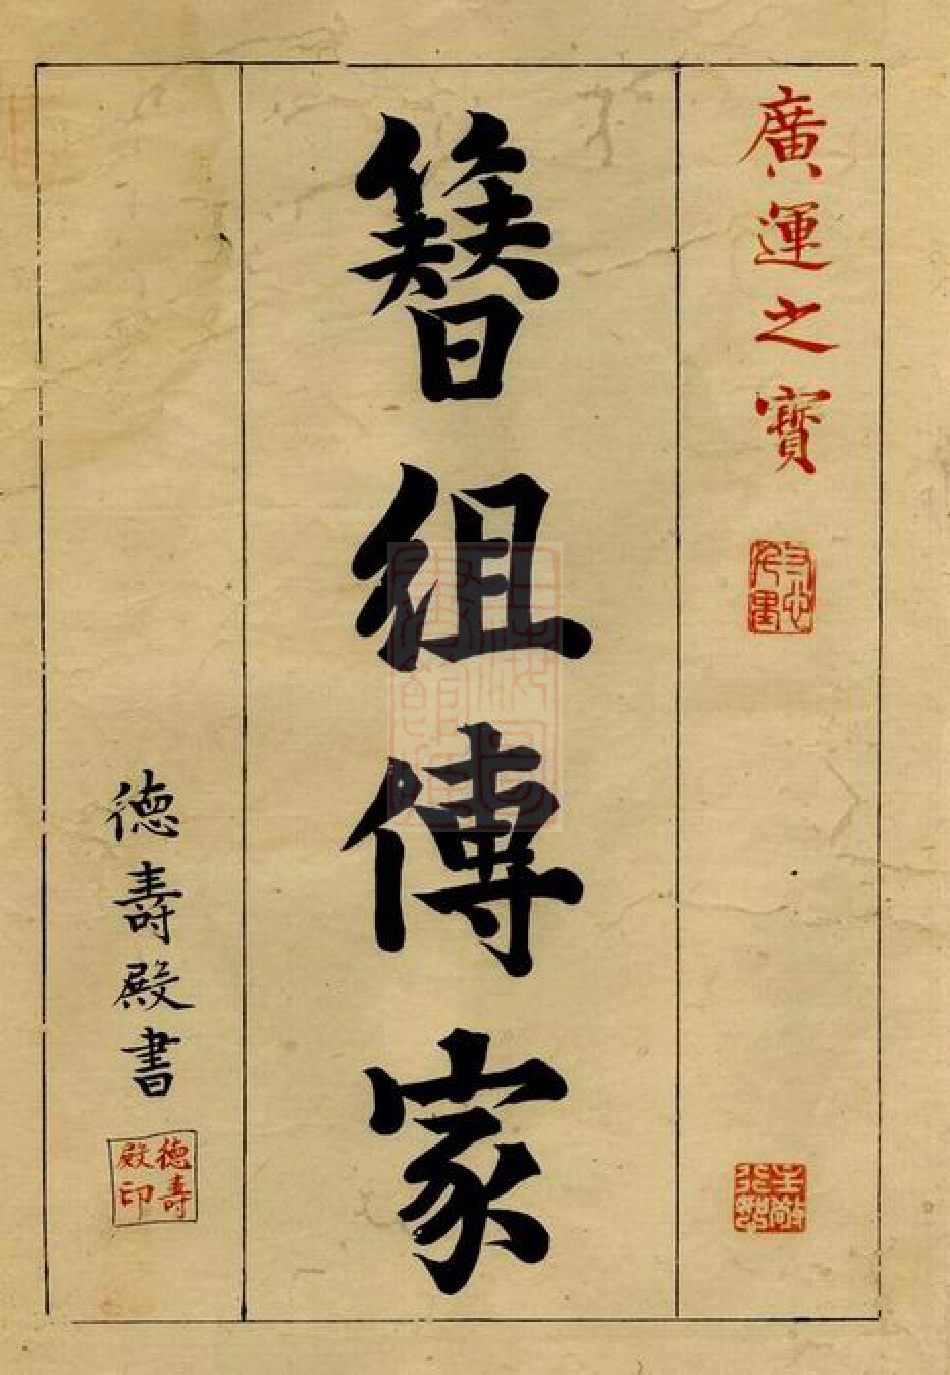 廣運之寶
簪組傳家
德壽殿書
德壽
殿印